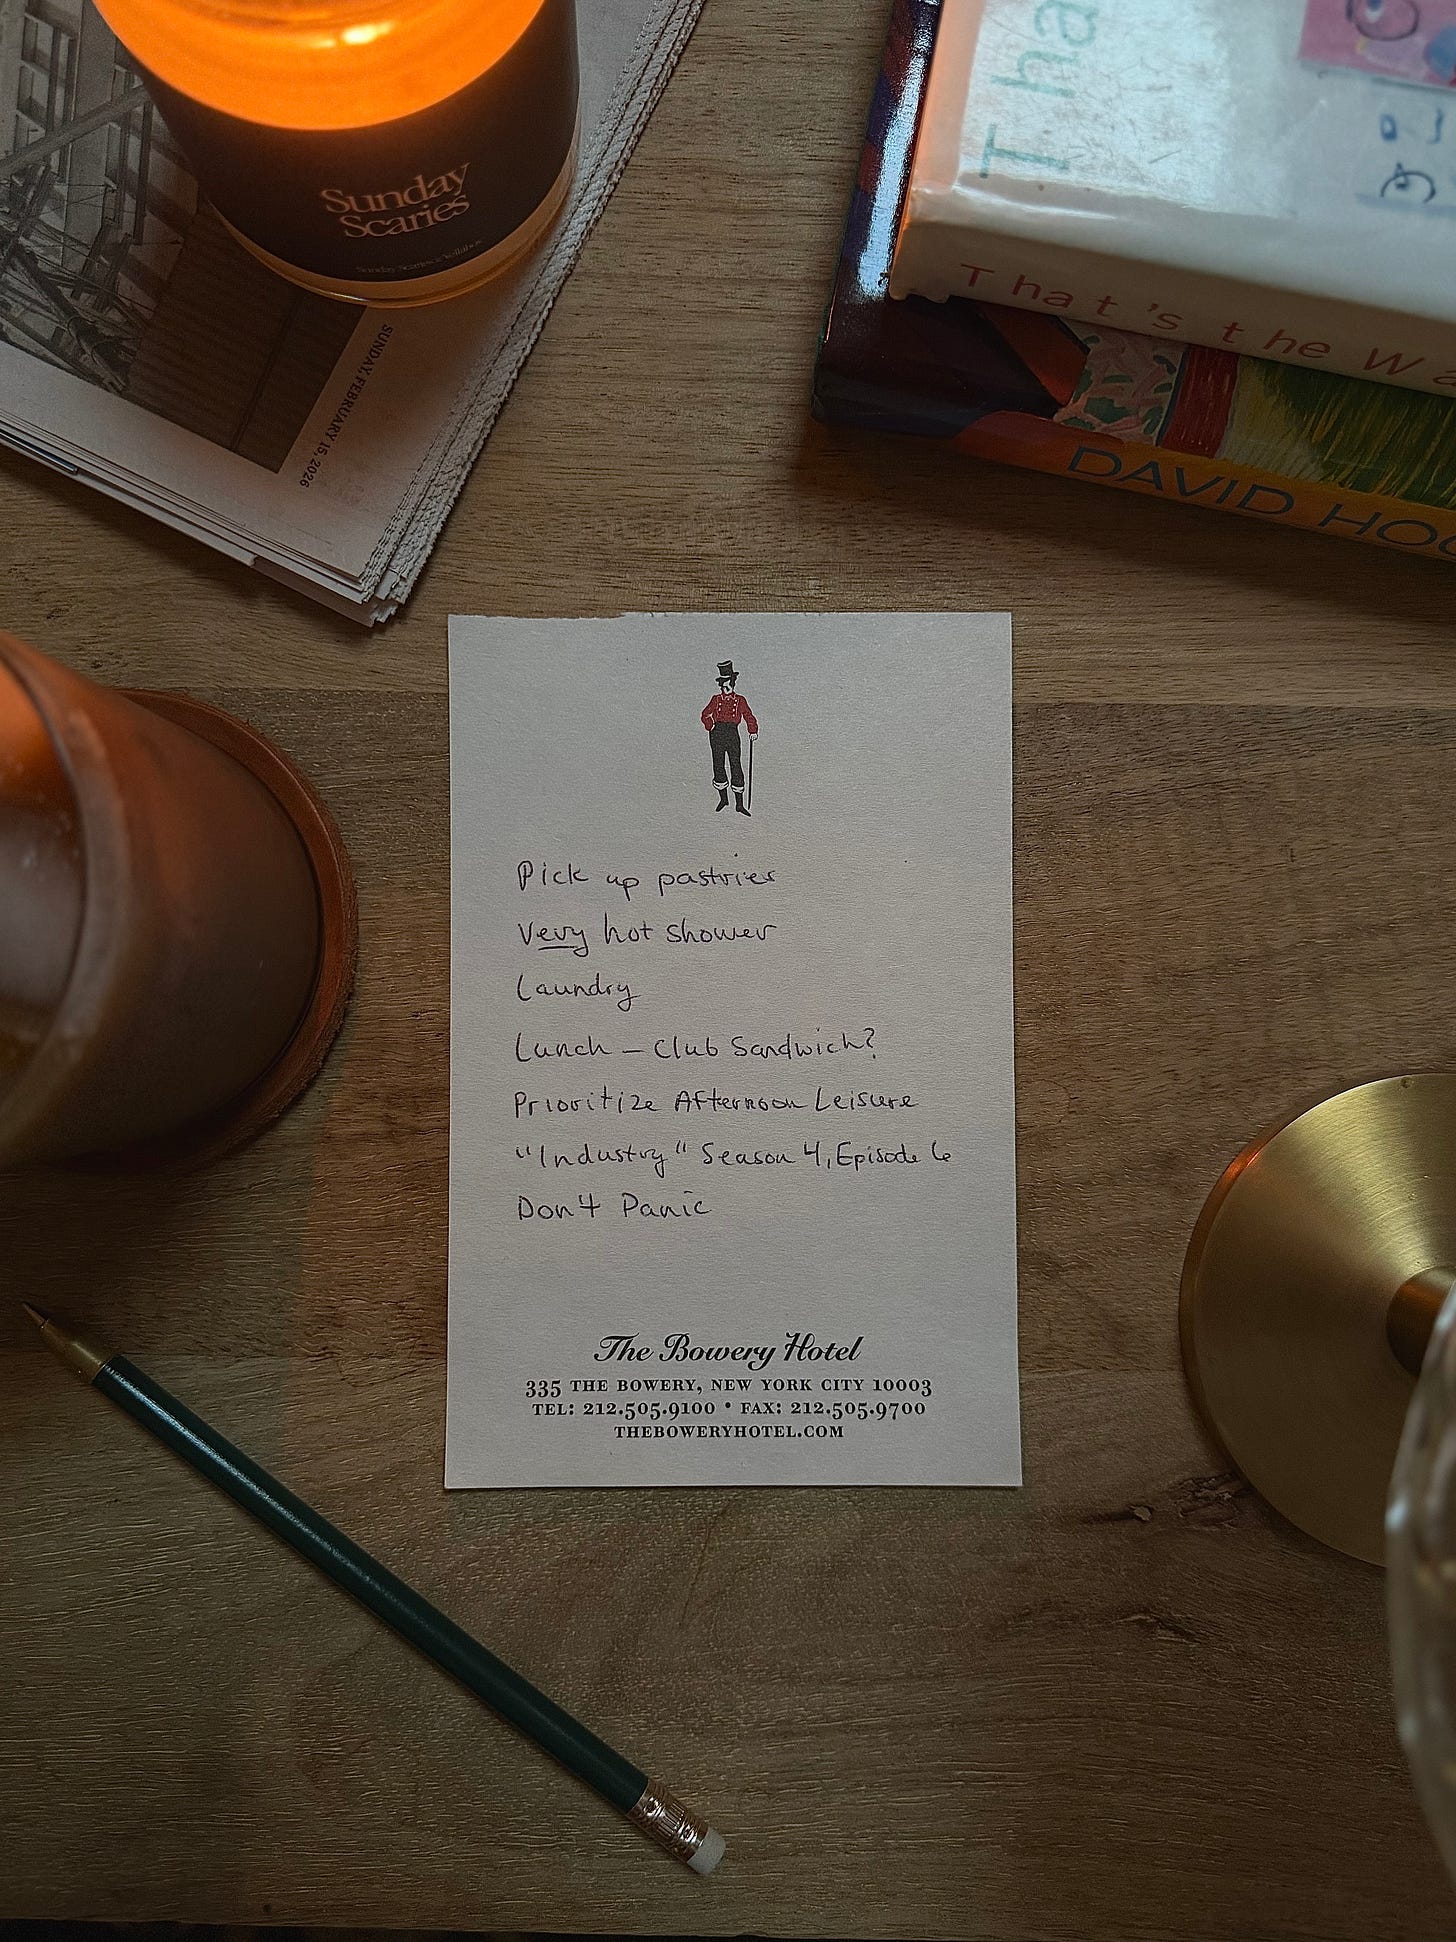 Sunday
Scaries
SUNDAY, FEBRUARY 15, 2026
Tha
That's the Wa
DAVID HOC
Pick up pastries
Very hot shower
Laundry
Lunch – Club Sandwich?
Prioritize Afternoon Leisure
"Industry" Season 4, Episode 6
Don't Panic
The Bowery Hotel
335 THE BOWERY, NEW YORK CITY 10003
TEL: 212.505.9100 • FAX: 212.505.9700
THEBOWERYHOTEL.COM